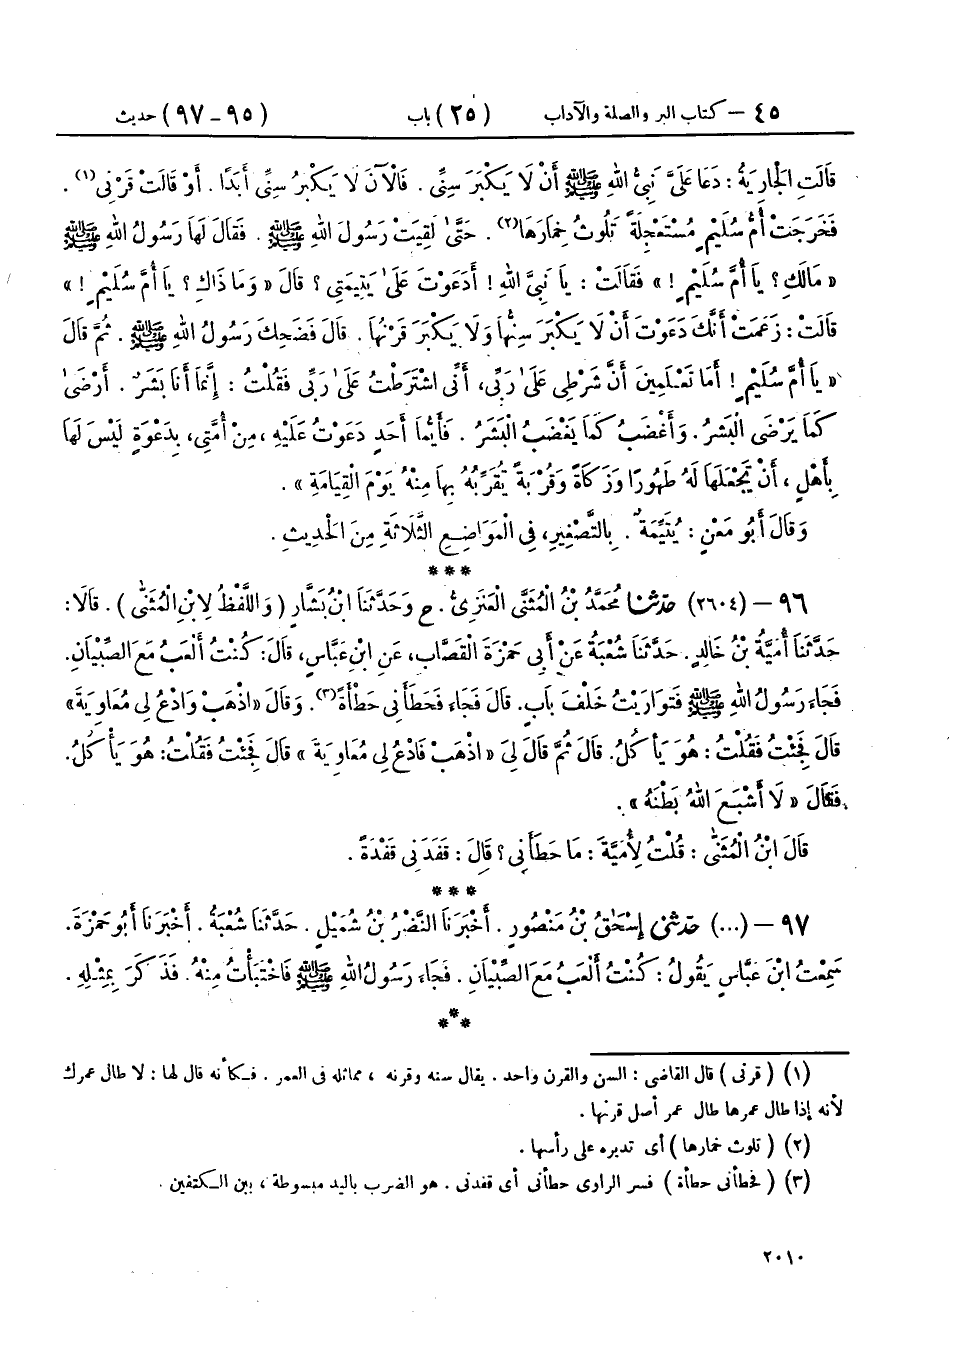 ٤٥ – كتاب البر والصلة والآداب (٢٥) باب (٩٥-٩٧) حديث
قَالَتِ الْجَارِيَةُ: دَعَا عَلَىَّ نَبِىُّ اللهِ ﷺ أَنْ لَا يَكْبَرَ سِنِّى. فَالْآنَ لَا يَكْبَرُ سِنِّى أَبَدًا. أَوْ قَالَتْ قَرْنِى(١).
فَخَرَجَتْ أُمُّ سُلَيْمٍ مُسْتَعْجِلَةً تَلُوثُ خِمَارَهَا(٢). حَتَّىٰ لَقِيَتْ رَسُولَ اللهِ ﷺ. فَقَالَ لَهَا رَسُولُ اللهِ ﷺ
« مَالَكِ؟ يَا أُمَّ سُلَيْمٍ! » فَقَالَتْ: يَا نَبِىَّ اللهِ! أَدَعَوْتَ عَلَىٰ يَتِيمَتِى؟ قَالَ « وَمَا ذَاكِ؟ يَا أُمَّ سُلَيْمٍ! »
قَالَتْ: زَعَمَتْ أَنَّكَ دَعَوْتَ أَنْ لَا يَكْبَرَ سِنُّهَا وَلَا يَكْبَرَ قَرْنُهَا. قَالَ فَضَحِكَ رَسُولُ اللهِ ﷺ. ثُمَّ قَالَ
« يَا أُمَّ سُلَيْمٍ! أَمَا تَعْلَمِينَ أَنَّ شَرْطِى عَلَىٰ رَبِّى، أَنِّى اشْتَرَطْتُ عَلَىٰ رَبِّى فَقُلْتُ: إِنَّمَا أَنَا بَشَرٌ. أَرْضَىٰ
كَمَا يَرْضَى الْبَشَرُ. وَأَغْضَبُ كَمَا يَغْضَبُ الْبَشَرُ. فَأَيُّمَا أَحَدٍ دَعَوْتُ عَلَيْهِ، مِنْ أُمَّتِى، بِدَعْوَةٍ لَيْسَ لَهَا
بِأَهْلٍ، أَنْ تَجْعَلَهَا لَهُ طَهُورًا وَزَكَاةً وَقُرْبَةً تُقَرِّبُهُ بِهَا مِنْهُ يَوْمَ الْقِيَامَةِ ».
وَقَالَ أَبُو مَعْنٍ: يُتَيِّمَةٌ. بِالتَّصْغِيرِ، فِى الْمَوَاضِعِ الثَّلَاثَةِ مِنَ الْحَدِيثِ.
***
٩٦ – (٢٦٠٤) حَدَّثَنَا مُحَمَّدُ بْنُ الْمُثَنَّى الْعَنَزِىُّ. ح وَحَدَّثَنَا ابْنُ بَشَّارٍ (وَاللَّفْظُ لِابْنِ الْمُثَنَّى). قَالَا:
حَدَّثَنَا أُمَيَّةُ بْنُ خَالِدٍ. حَدَّثَنَا شُعْبَةُ عَنْ أَبِى حَمْزَةَ الْقَصَّابِ، عَنِ ابْنِ عَبَّاسٍ، قَالَ: كُنْتُ أَلْعَبُ مَعَ الصِّبْيَانِ.
فَجَاءَ رَسُولُ اللهِ ﷺ فَتَوَارَيْتُ خَلْفَ بَابٍ. قَالَ فَجَاءَ فَحَطَأَنِى حَطْأَةً(٣). وَقَالَ «اذْهَبْ وَادْعُ لِى مُعَاوِيَةَ»
قَالَ فَجِئْتُ فَقُلْتُ: هُوَ يَأْكُلُ. قَالَ ثُمَّ قَالَ لِىَ « اذْهَبْ فَادْعُ لِى مُعَاوِيَةَ » قَالَ فَجِئْتُ فَقُلْتُ: هُوَ يَأْكُلُ.
فَقَالَ « لَا أَشْبَعَ اللهُ بَطْنَهُ ».
قَالَ ابْنُ الْمُثَنَّى: قُلْتُ لِأُمَيَّةَ: مَا حَطَأَنِى؟ قَالَ: قَفَدَنِى قَفْدَةً.
***
٩٧ – (...) حَدَّثَنِى إِسْحَٰقُ بْنُ مَنْصُورٍ. أَخْبَرَنَا النَّضْرُ بْنُ شُمَيْلٍ. حَدَّثَنَا شُعْبَةُ. أَخْبَرَنَا أَبُو حَمْزَةَ.
سَمِعْتُ ابْنَ عَبَّاسٍ يَقُولُ: كُنْتُ أَلْعَبُ مَعَ الصِّبْيَانِ. فَجَاءَ رَسُولُ اللهِ ﷺ فَاخْتَبَأْتُ مِنْهُ. فَذَكَرَ بِمِثْلِهِ.
***
(١) (قرنى) قال القاضى: السن والقرن واحد. يقال سنه وقرنه، مماثله فى العمر. فكأنه قال لها: لا طال عمرك
لأنه إذا طال عمرها طال عمر أصل قرنها.
(٢) (تلوث خمارها) أى تديره على رأسها.
(٣) (فحطأنى حطأة) فسر الراوى حطأنى أى قفدنى. هو الضرب باليد مبسوطة، بين الكتفين.
٢٠١٠